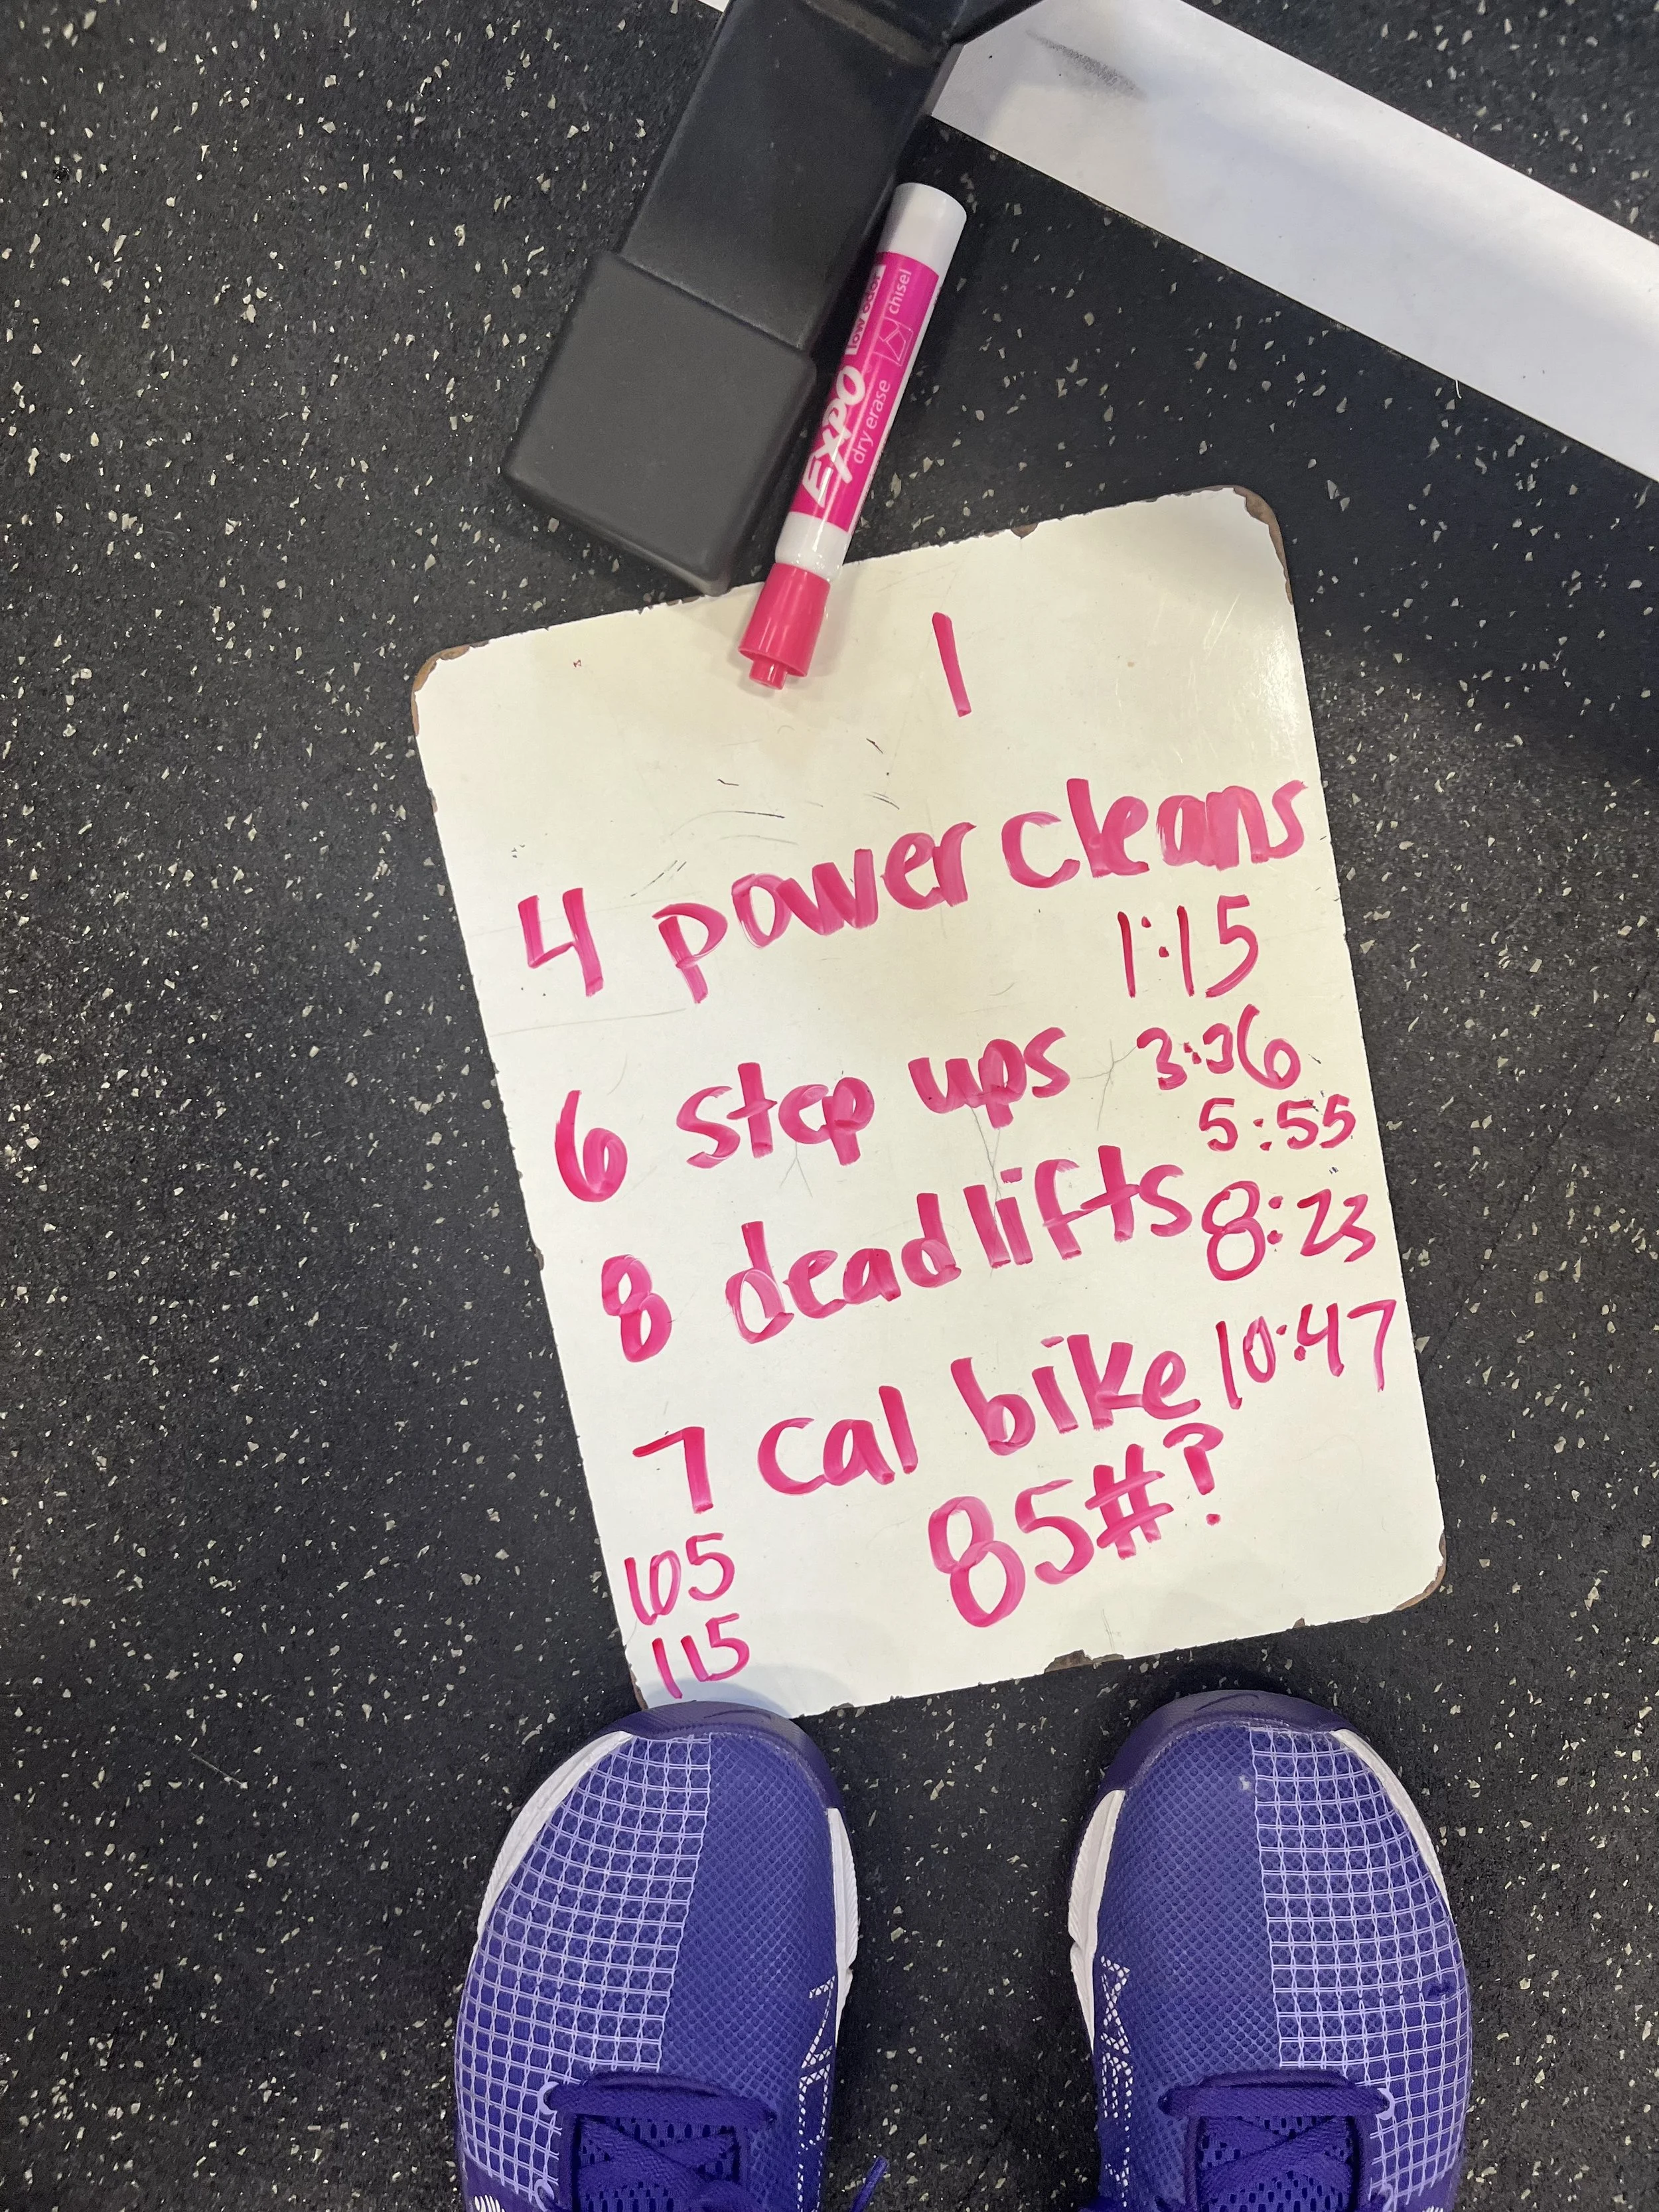 EXPO
low odor
dry erase
chisel
1
4 power cleans
1:15
6 step ups 3:36
5:55
8 deadlifts 8:23
7 cal bike 10:47
85#?
65
115